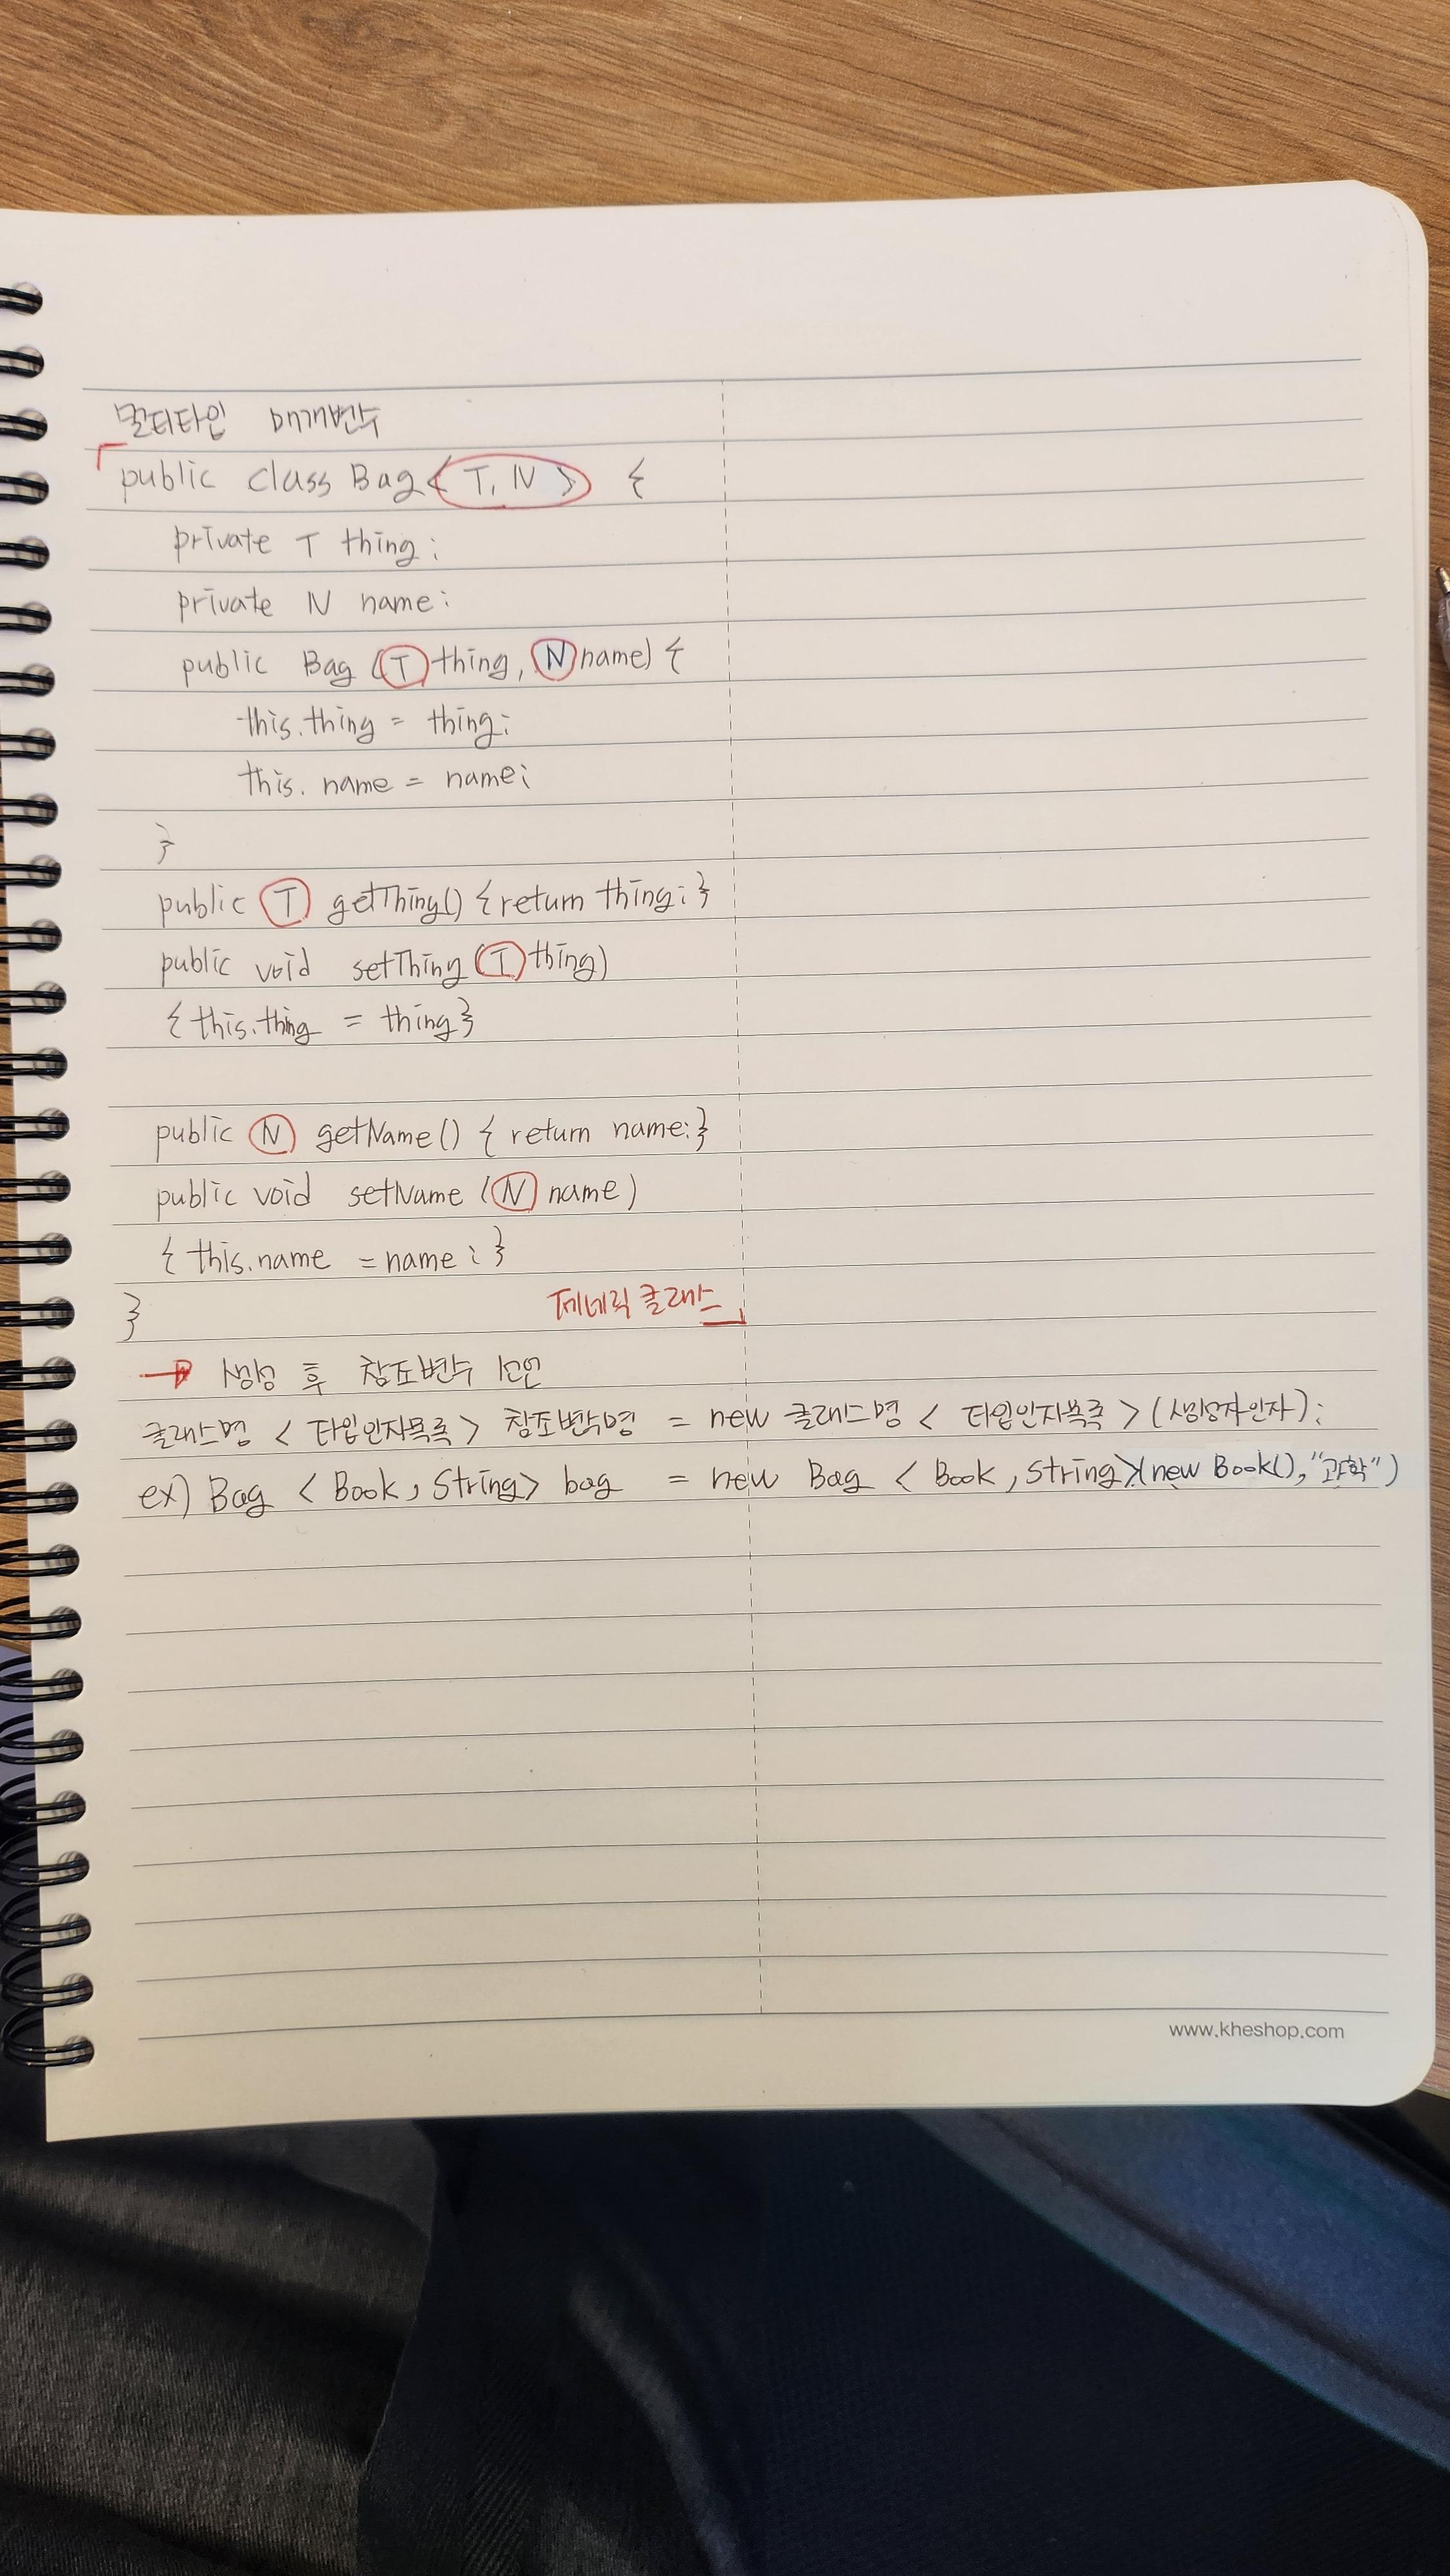 멀티타입 매개변수
public class Bag< T, N > {
private T thing;
private N name;
public Bag (T thing, N name) {
this.thing = thing;
this. name = name;
}
public T getThing() { return thing; }
public void setThing (T thing)
{ this.thing = thing}
public N getName() { return name; }
public void setName (N name)
{ this.name = name ; }
}
제네릭 클래스
→ 생성 후 참조변수 선언
클래스명 < 타입인자목록 > 참조변수명 = new 클래스명 < 타입인자목록 > (생성자인자);
ex) Bag < Book, String> bag = new Bag < Book, String>(new Book(), "과학")
www.kheshop.com